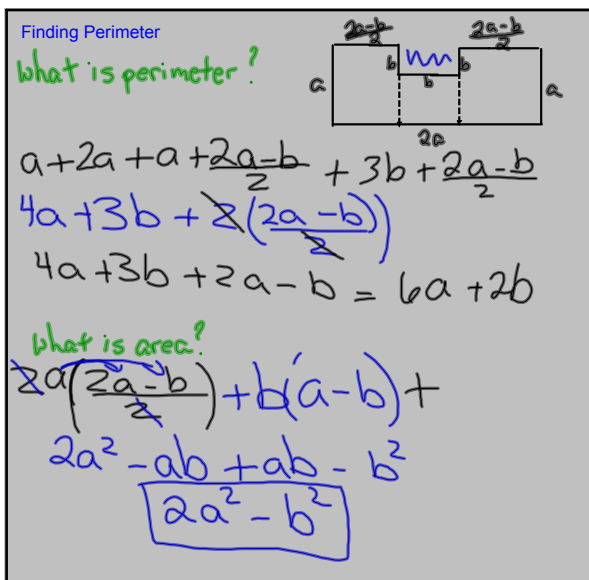 Finding Perimeter
What is perimeter?
(2a-b)/2 (2a-b)/2
b b
a b a
2a
a + 2a + a + (2a-b)/2 + 3b + (2a-b)/2
4a + 3b + 2((2a-b)/2)
4a + 3b + 2a - b = 6a + 2b
What is area?
2a((2a-b)/2) + b(a-b) +
2a² - ab + ab - b²
2a² - b²